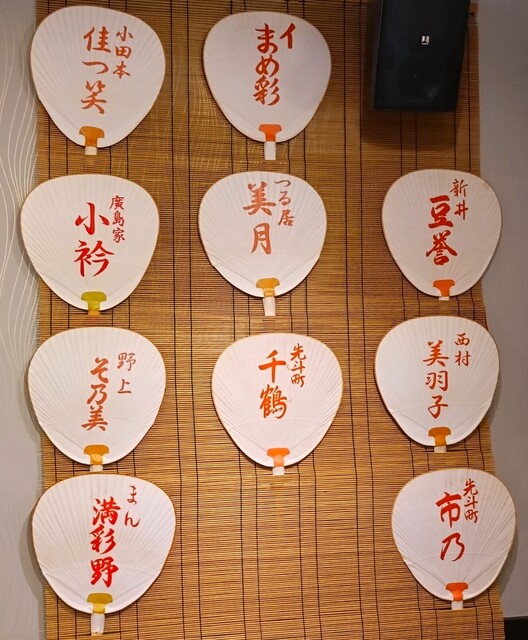 小田本
佳つ笑
イ
まめ彩
廣島家
小衿
つる居
美月
新井
豆誉
野上
そ乃美
先斗町
千鶴
西村
美羽子
まん
満彩野
先斗町
市乃